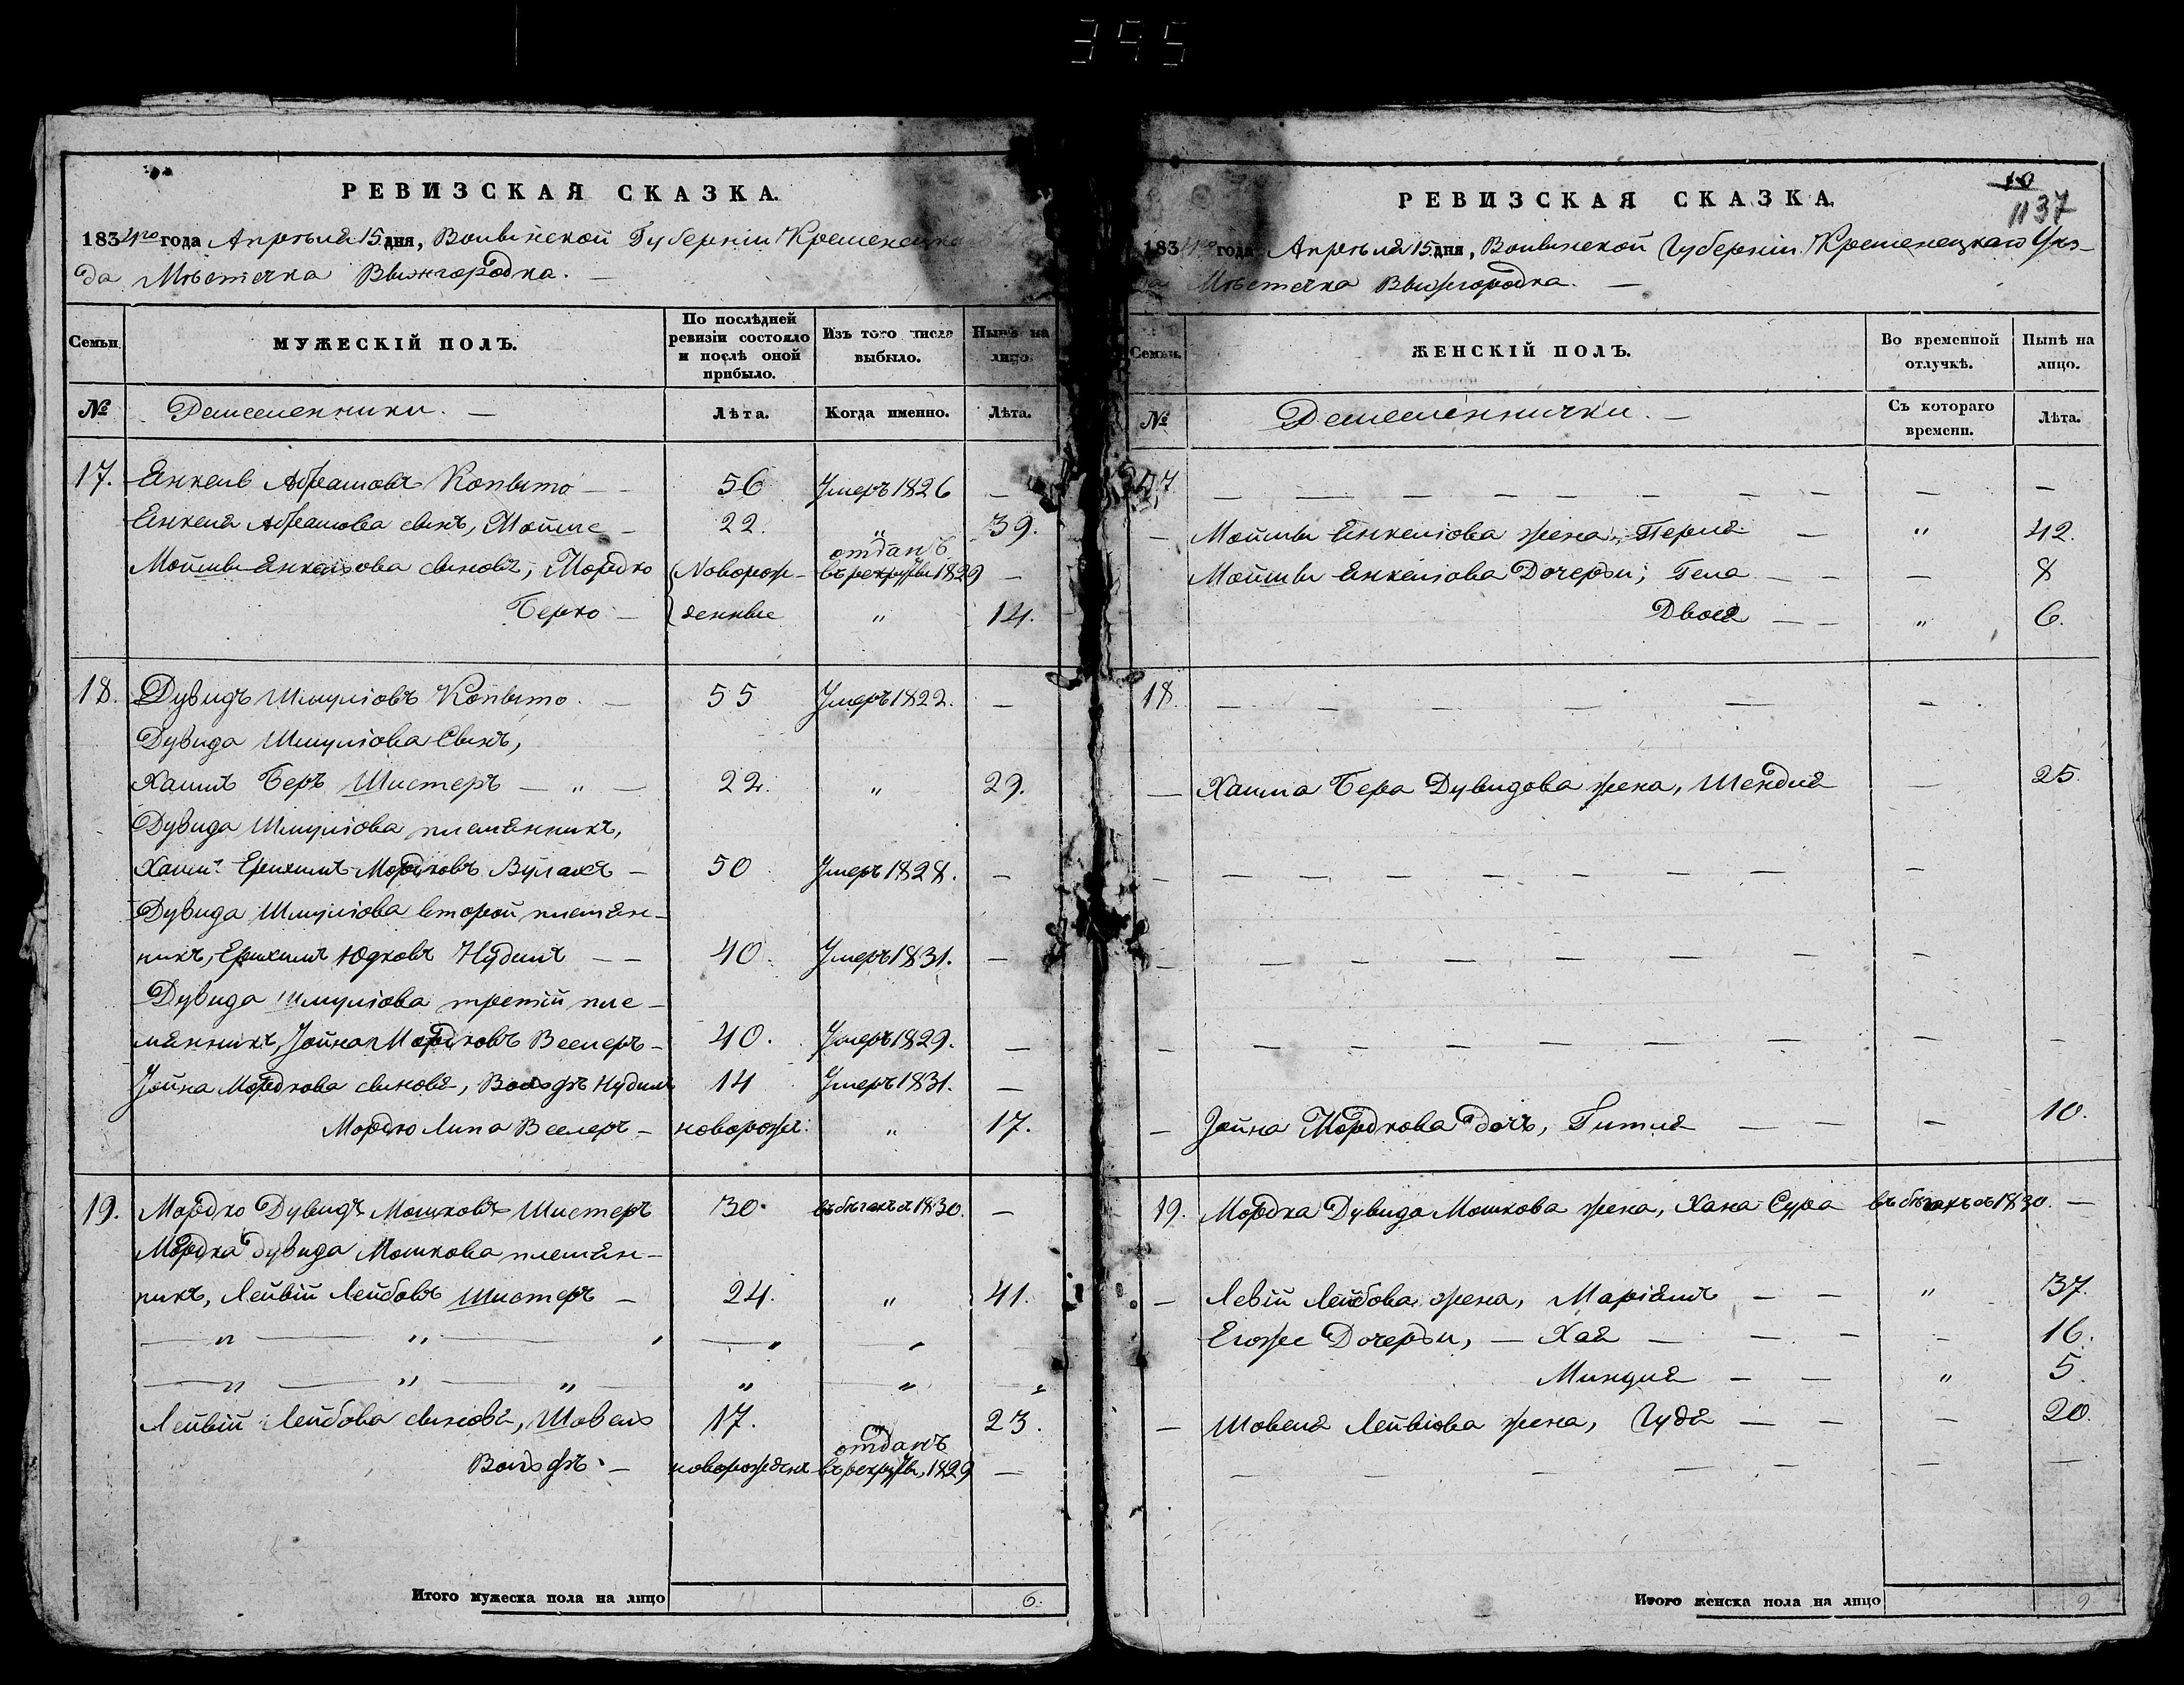 395
РЕВИЗСКАЯ СКАЗКА.
1834го года Апрѣля 15 дня, Волынской Губерніи Кременецка
да Мѣстечка Вышгородка. —
Семьи. МУЖЕСКІЙ ПОЛЪ. По послѣдней ревизіи состояло и послѣ оной прибыло. Изъ того числа выбыло. Нынѣ на лицо.
№ Лѣта. Когда именно. Лѣта.
17. Янкель Абрамовъ Копыто — 56 Умеръ 1826 —
Янкеля Абрамова сынъ, Мойше — 22. „ 39.
Мойшы Янкельова сыновъ, Мордко {Новорож- отданъ въ рекруты 1829 —
Берко — }денные „ 14.
18. Дувидъ Шмульовъ Копыто. — 55 Умеръ 1822. —
Дувида Шмульова Сынъ,
Хаимъ Беръ Шистеръ — „ — 22. „ 29.
Дувида Шмульова племянникъ,
Хаимъ Мордковъ — 50 Умеръ 1828. —
Дувида Шмульова второй племян-
никъ, Юдковъ Нудимъ — — 40. Умеръ 1831. —
Дувида Шмульова третій пле-
мянникъ, Іойна Мордковъ Веслеръ — 40. Умеръ 1829. —
Іойна Мордкова сыновя, Вольфъ Нудимъ 14 Умеръ 1831. —
Мордко Липа Веслеръ — новорожд. „ 17.
19. Мордко Дувидъ Мошковъ Шистеръ 30. въ бѣгахъ съ 1830. —
Мордка Дувида Мошкова племян-
никъ, Лейвій Лейбовъ Шистеръ — 24. „ 41.
— „ — „ — „
— „ — „ — „
Лейвій Лейбова сыновя, Шовель 17. 23.
Вольфъ. — новорожден отданъ въ рекруты, 1829 —
Итого мужеска пола на лицо 6.
10
1137
РЕВИЗСКАЯ СКАЗКА.
1834го года Апрѣля 15 дня, Волынской Губерніи Кременецкаго Уѣз-
да Мѣстечка Вышгородка. —
Семьи. ЖЕНСКІЙ ПОЛЪ. Во временной отлучкѣ. Нынѣ на лицо.
№ Съ котораго времени. Лѣта.
17. — — — — — — — — —
— Мойшы Янкельова жена, Перля „ 42.
Мойшы Янкельова Дочеры; Гела — — — 8
Двося — — „ 6.
18. — — — — — —
— Хаима Бера Дувидова жена, Шендля — 25.
— — — — — — — — —
— — — — — — — — —
— — — — — — — — —
— Іойна Мордкова дочь, Гитля — — — 10.
19. Мордка Дувида Мошкова жена, Хана Сура въ бѣгахъ съ 1830. —
— Левій Лейбова жена, Маріямъ — — „ 37.
Егожъ Дочеры, — Хая — — — — 16.
Миндля — — „ 5.
— Шовеля Лейвіова жена, Гудя — — — 20.
— — — — — — — — —
Итого женска пола на лицо 9